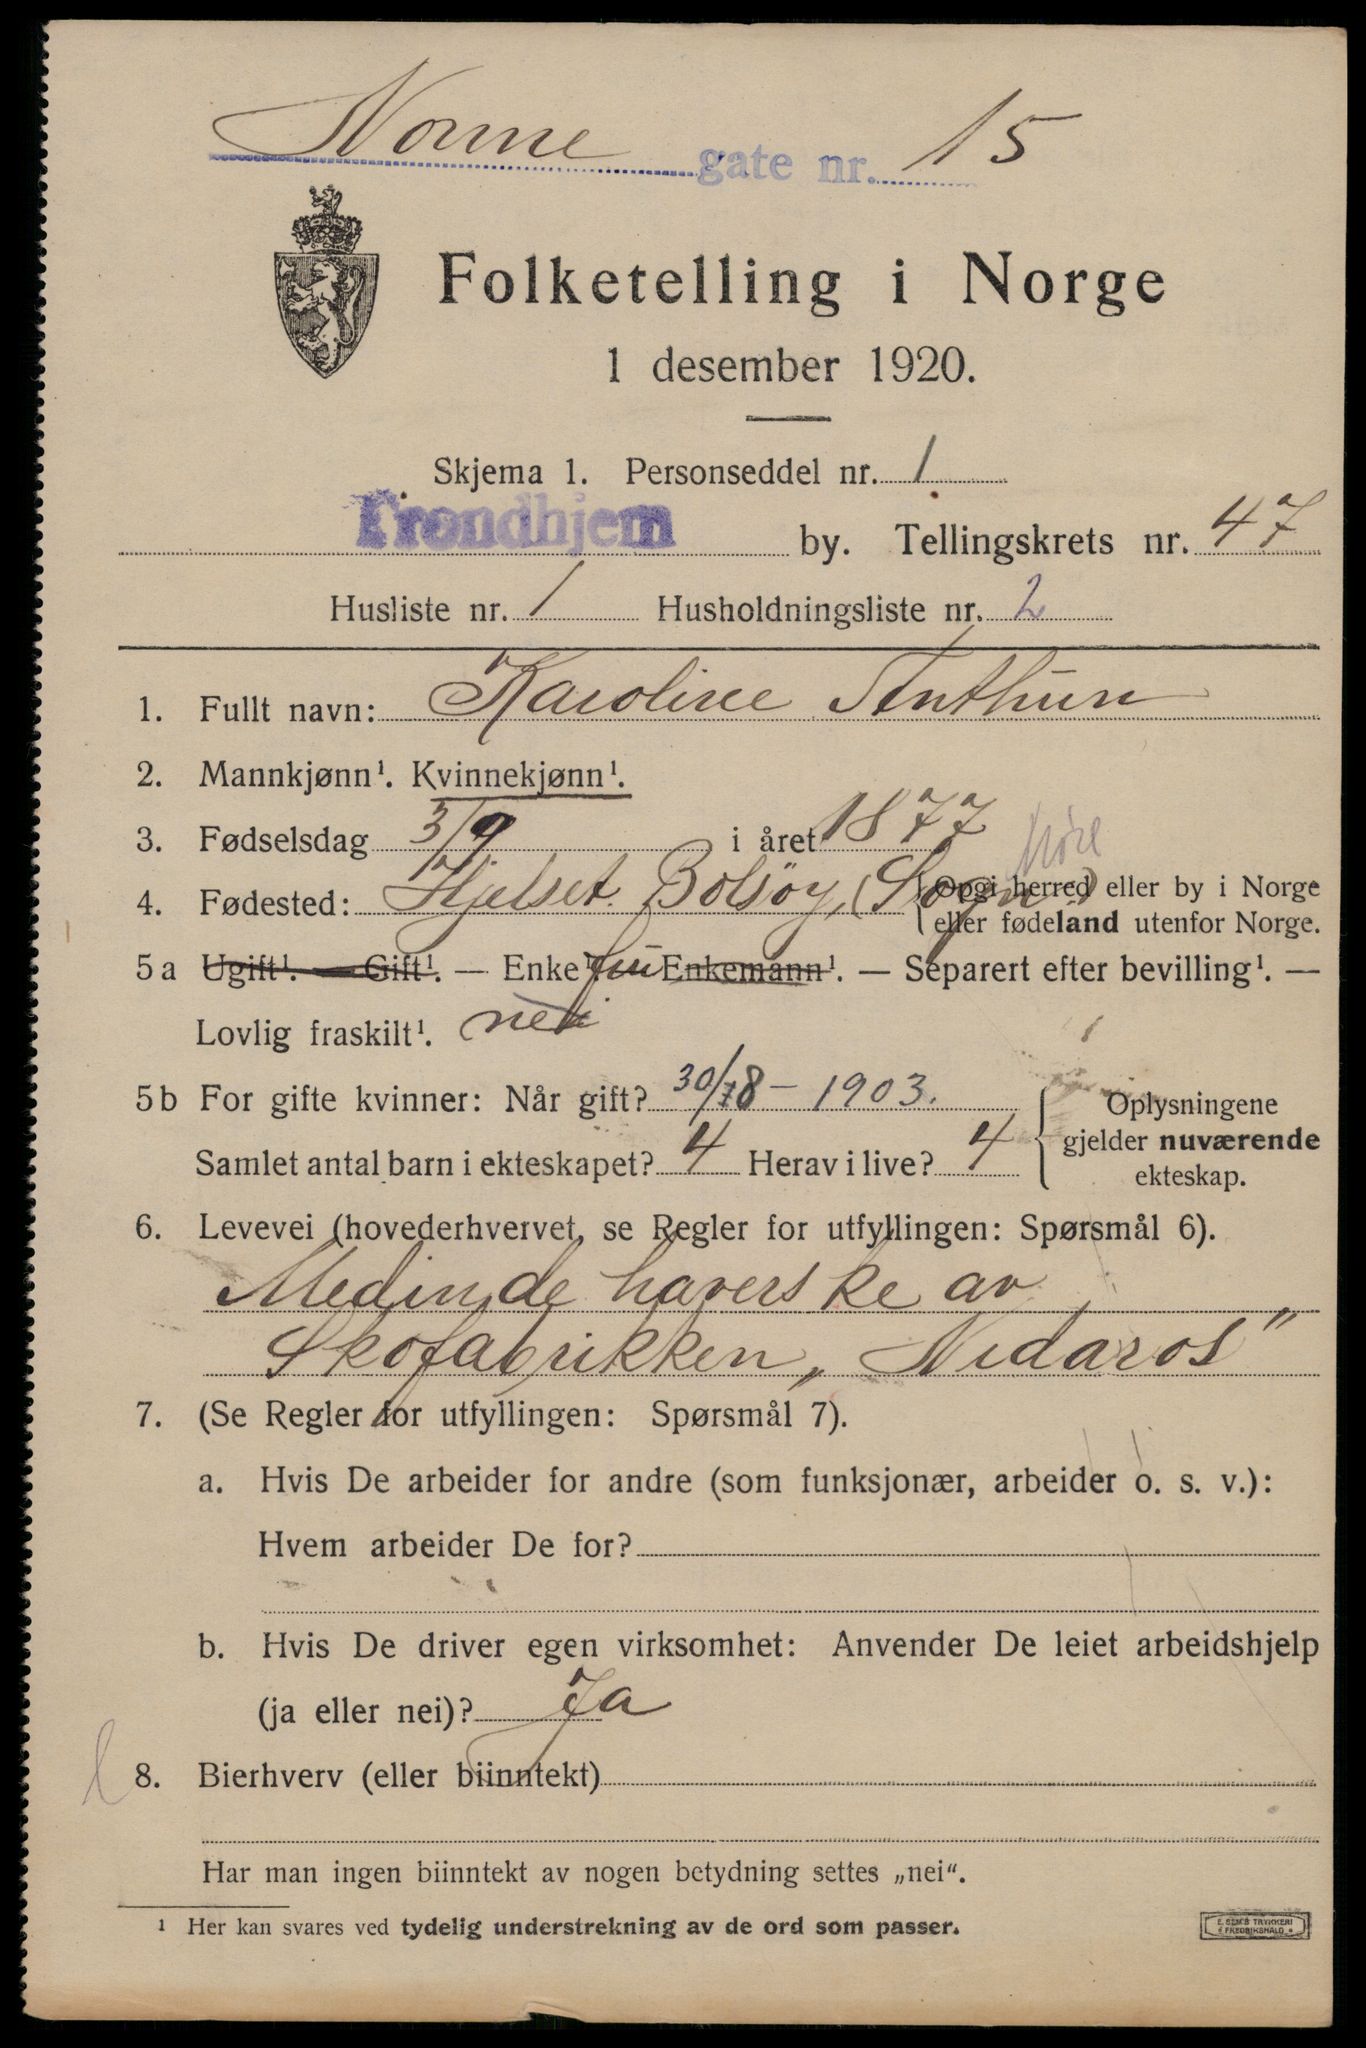 Nonne gate nr. 15
Folketelling i Norge
1 desember 1920.
Skjema 1. Personseddel nr. 1
Trondhjem by. Tellingskrets nr. 47
Husliste nr. 1 Husholdningsliste nr. 2
1. Fullt navn: Karoline Anthun
2. Mannkjønn¹. Kvinnekjønn¹.
3. Fødselsdag 3/9 i året 1877
4. Fødested: Hjelset Bolsöy, (Sogn) {Opgi herred eller by i Norge
eller fødeland utenfor Norge.
5a Ugift¹. — Gift¹. — Enke¹ fru Enkemann¹. — Separert efter bevilling¹. —
Lovlig fraskilt¹. nei
5b For gifte kvinner: Når gift? 30/8 - 1903. { Oplysningene
gjelder nuværende
ekteskap.
Samlet antal barn i ekteskapet? 4 Herav i live? 4
6. Levevei (hovederhvervet, se Regler for utfyllingen: Spørsmål 6).
Medindehaverske av
Skofabrikken „Nidaros"
7. (Se Regler for utfyllingen: Spørsmål 7).
a. Hvis De arbeider for andre (som funksjonær, arbeider o. s. v.):
Hvem arbeider De for?
b. Hvis De driver egen virksomhet: Anvender De leiet arbeidshjelp
(ja eller nei)? Ja
8. Bierhverv (eller biinntekt)
Har man ingen biinntekt av nogen betydning settes „nei".
¹ Her kan svares ved tydelig understrekning av de ord som passer.
E. SEM'S TRYKKERI
FREDRIKSHALD